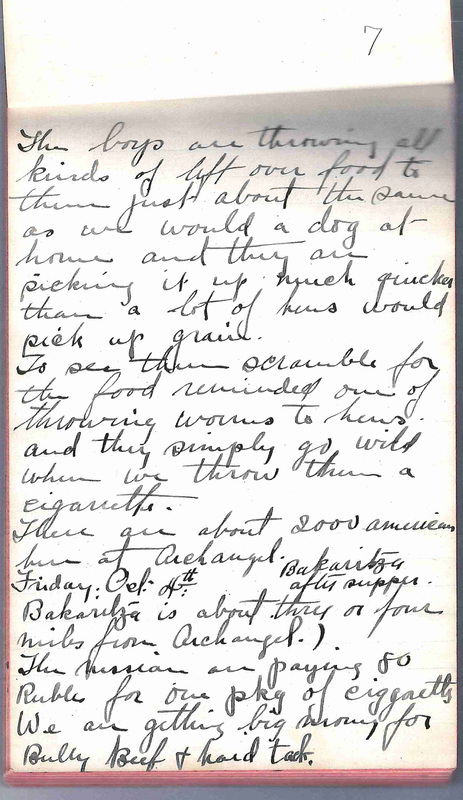 7
The boys are throwing all
kinds of left over food to
them just about the same
as we would a dog at
home and they are
picking it up much quicker
than a lot of hens would
pick up grain.
To see them scramble for
the food reminded one of
throwing worms to hens.
and they simply go wild
when we throw them a
cigarette.
There are about 2000 americans
here at Archangel.
Friday. Oct. 4th. Bakaritza
after supper.
Bakaritza is about three or four
miles from Archangel.)
The russian are paying 80
Rubles for one pkg of ciggaretts
We are getting big money for
Bully Beef & hard tack.